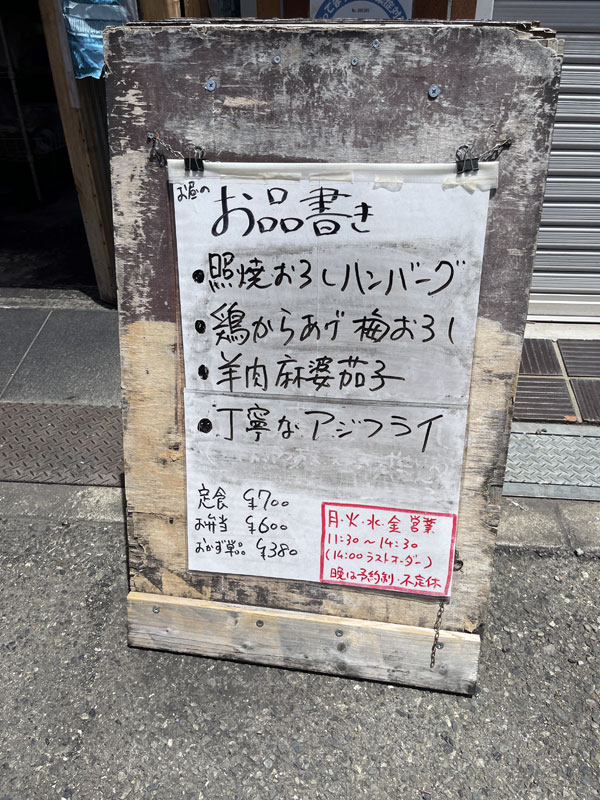 お昼の
お品書き
●照焼おろしハンバーグ
●鶏からあげ梅おろし
●羊肉麻婆茄子
●丁寧なアジフライ
定食 ¥700
お弁当 ¥600
おかず単品 ¥380
月・火・水・金 営業
11:30〜14:30
(14:00ラストオーダー)
晩は予約制・不定休